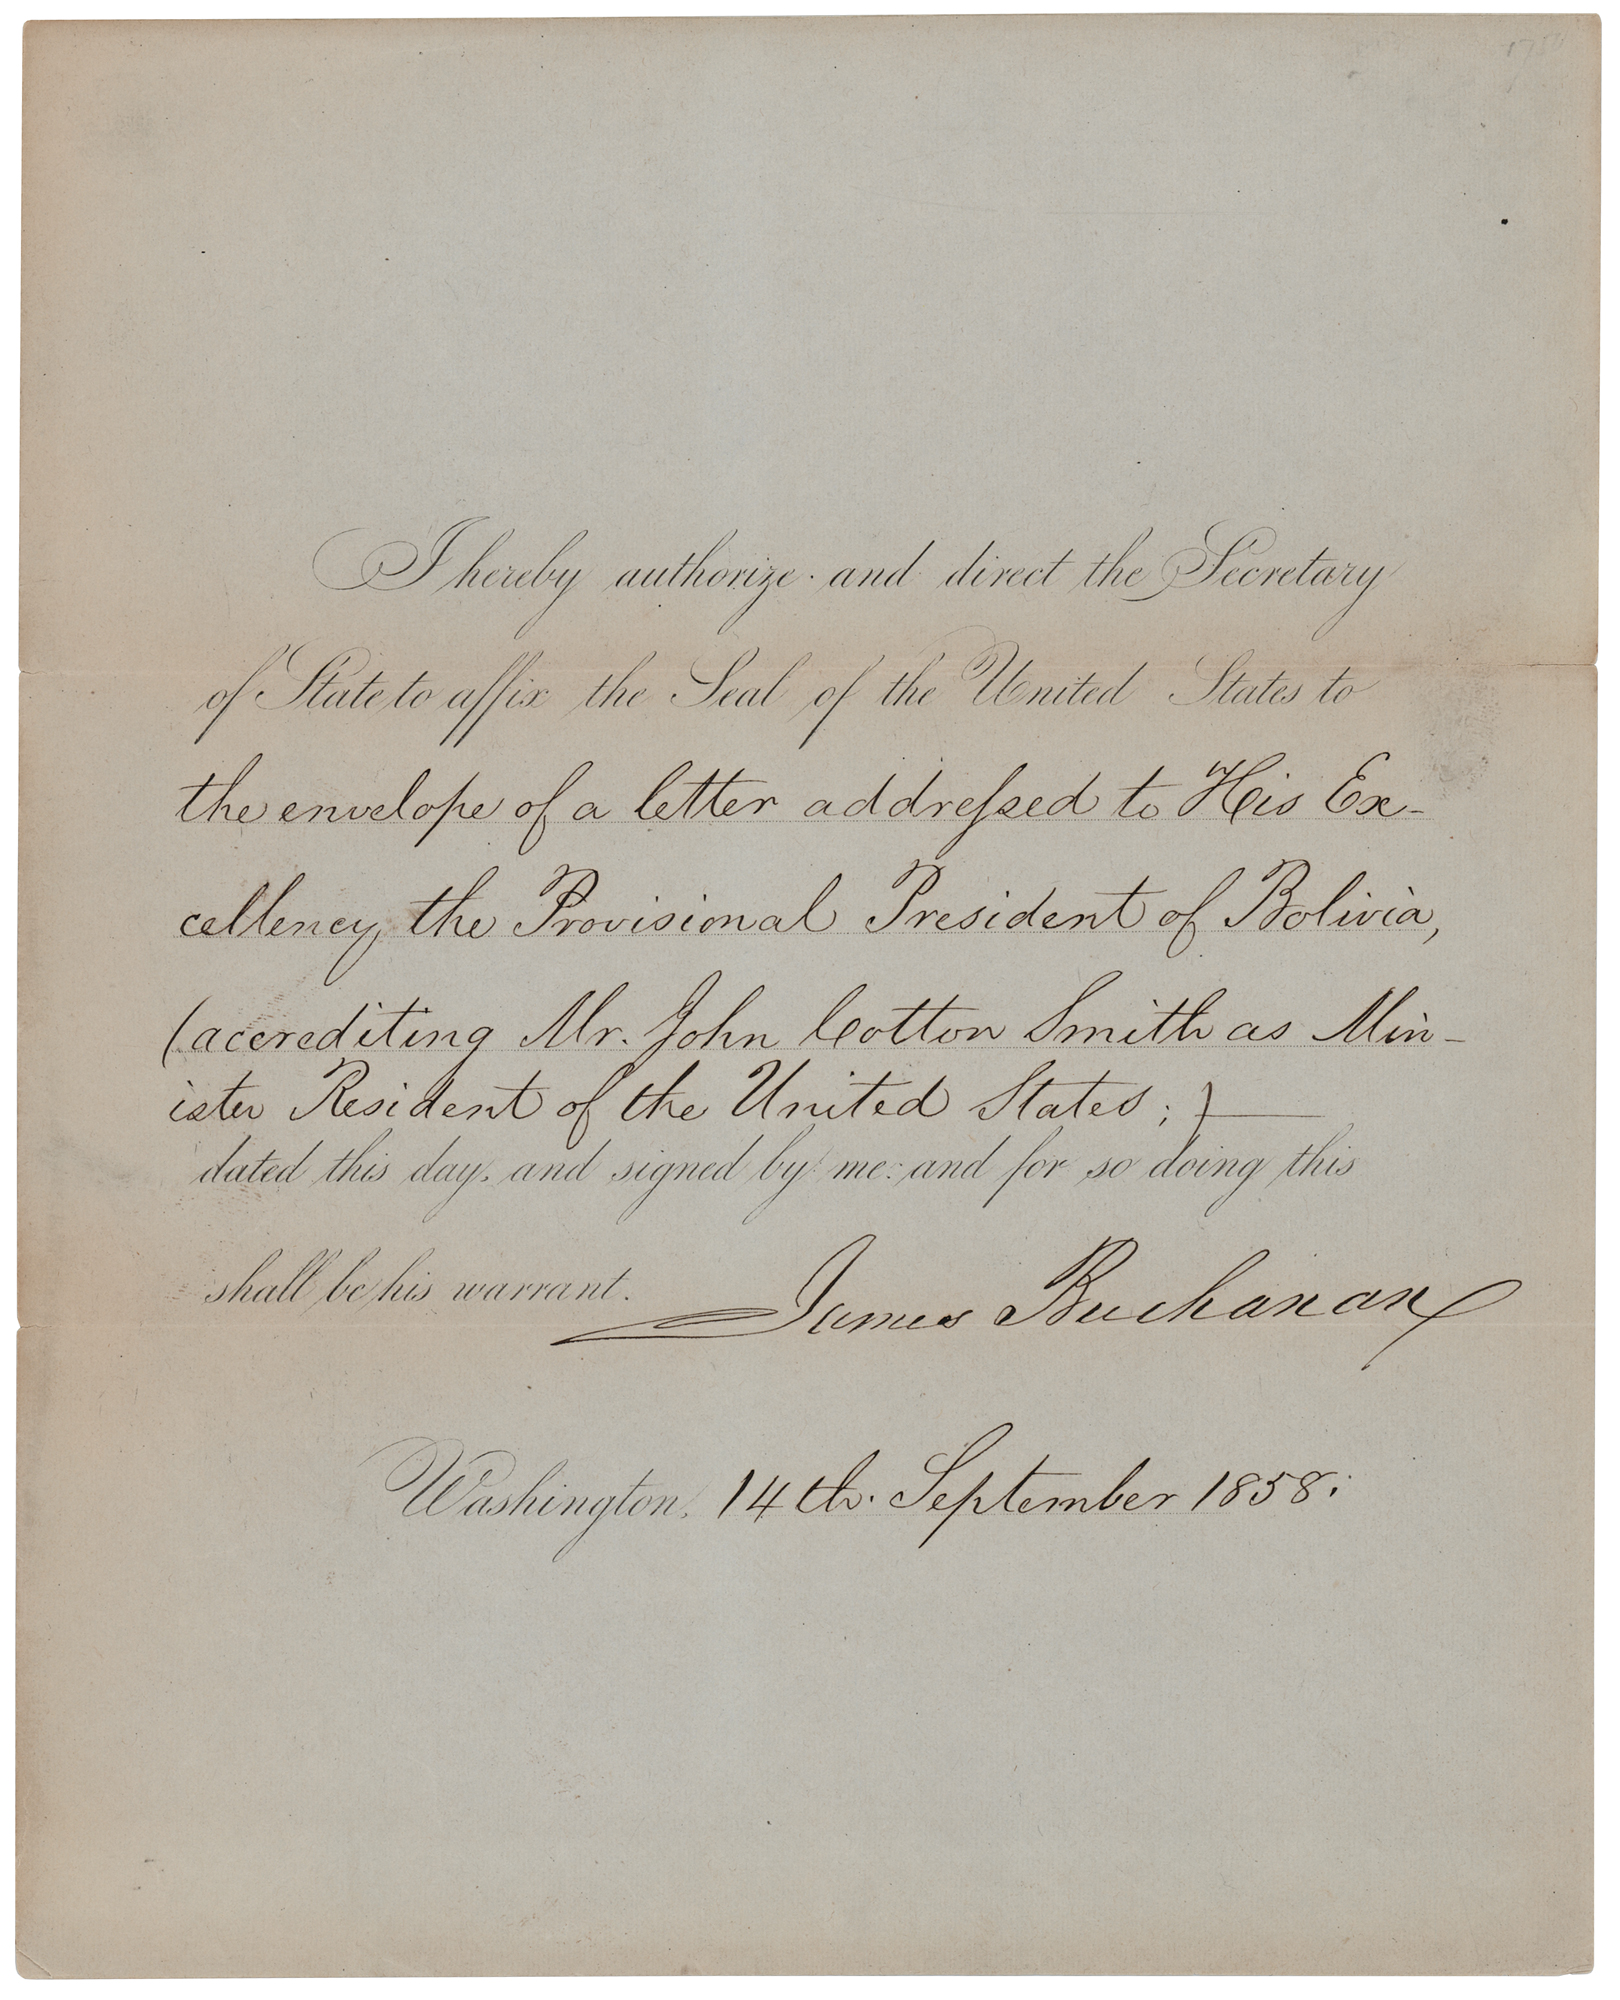 I hereby authorize and direct the Secretary
of State to affix the Seal of the United States to
the envelope of a letter addreſsed to His Ex-
cellency, the Provisional President of Bolivia,
(accrediting Mr. John Cotton Smith as Min-
ister Resident of the United States;)
dated this day, and signed by me: and for so doing this
shall be his warrant.
James Buchanan
Washington, 14th. September 1858.